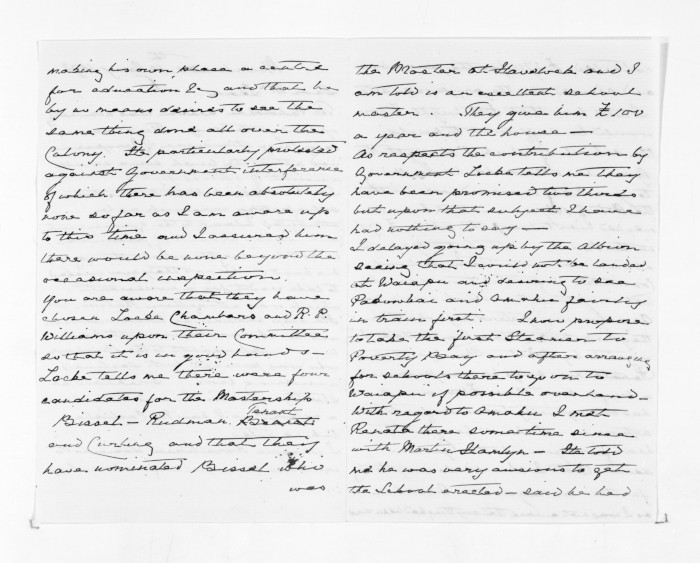 making his own place a centre
for education &c, and that he
by no means desires to see the
same thing done all over the
Colony. He particularly protested
against Government interference
of which there has been absolutely
none so far as I am aware up
to this time and I assured him
there would be none beyond the
occasional inspection.
You are aware that they have
chosen Locke Chambers and R. P.
Williams upon their Committee
so that it is in good hands -
Locke tells me there were four
candidates for the Mastership
Bissel - Rudman
Tenant
and Curling and that they
have nominated Bissel who
was
the Master at Havelock and I
am told is an excellent school
master. They give him £100
a year and the house -
As respects the contribution by
Government Locke tells me they
have been promised two thirds
but upon that subject I have
had nothing to say -
I delayed going up by the Albion
seeing that I could not be landed
at Waiapu and desiring to see
Pakowhai and Omahu fairly
in train first. I now propose
to take the first Steamer to
Poverty Bay and after arranging
for schools there to go on to
Waiapu if possible overland -
With regard to Omahu I met
Renata there some time since
with Martin Hamlyn - He told
me he was very anxious to get
the School erected - said he had